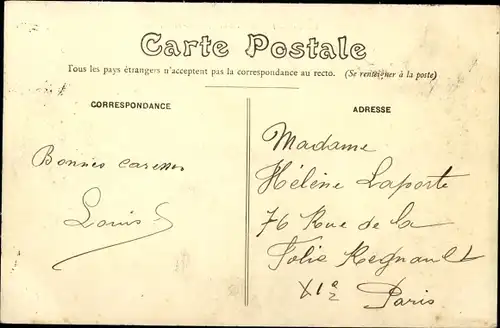 Carte Postale
Tous les pays étrangers n'acceptent pas la correspondance au recto. (Se renseigner à la poste)
CORRESPONDANCE
Bonnes caresses
Louis
ADRESSE
Madame
Hélène Laporte
76 Rue de la
Folie Regnault
XIe
Paris